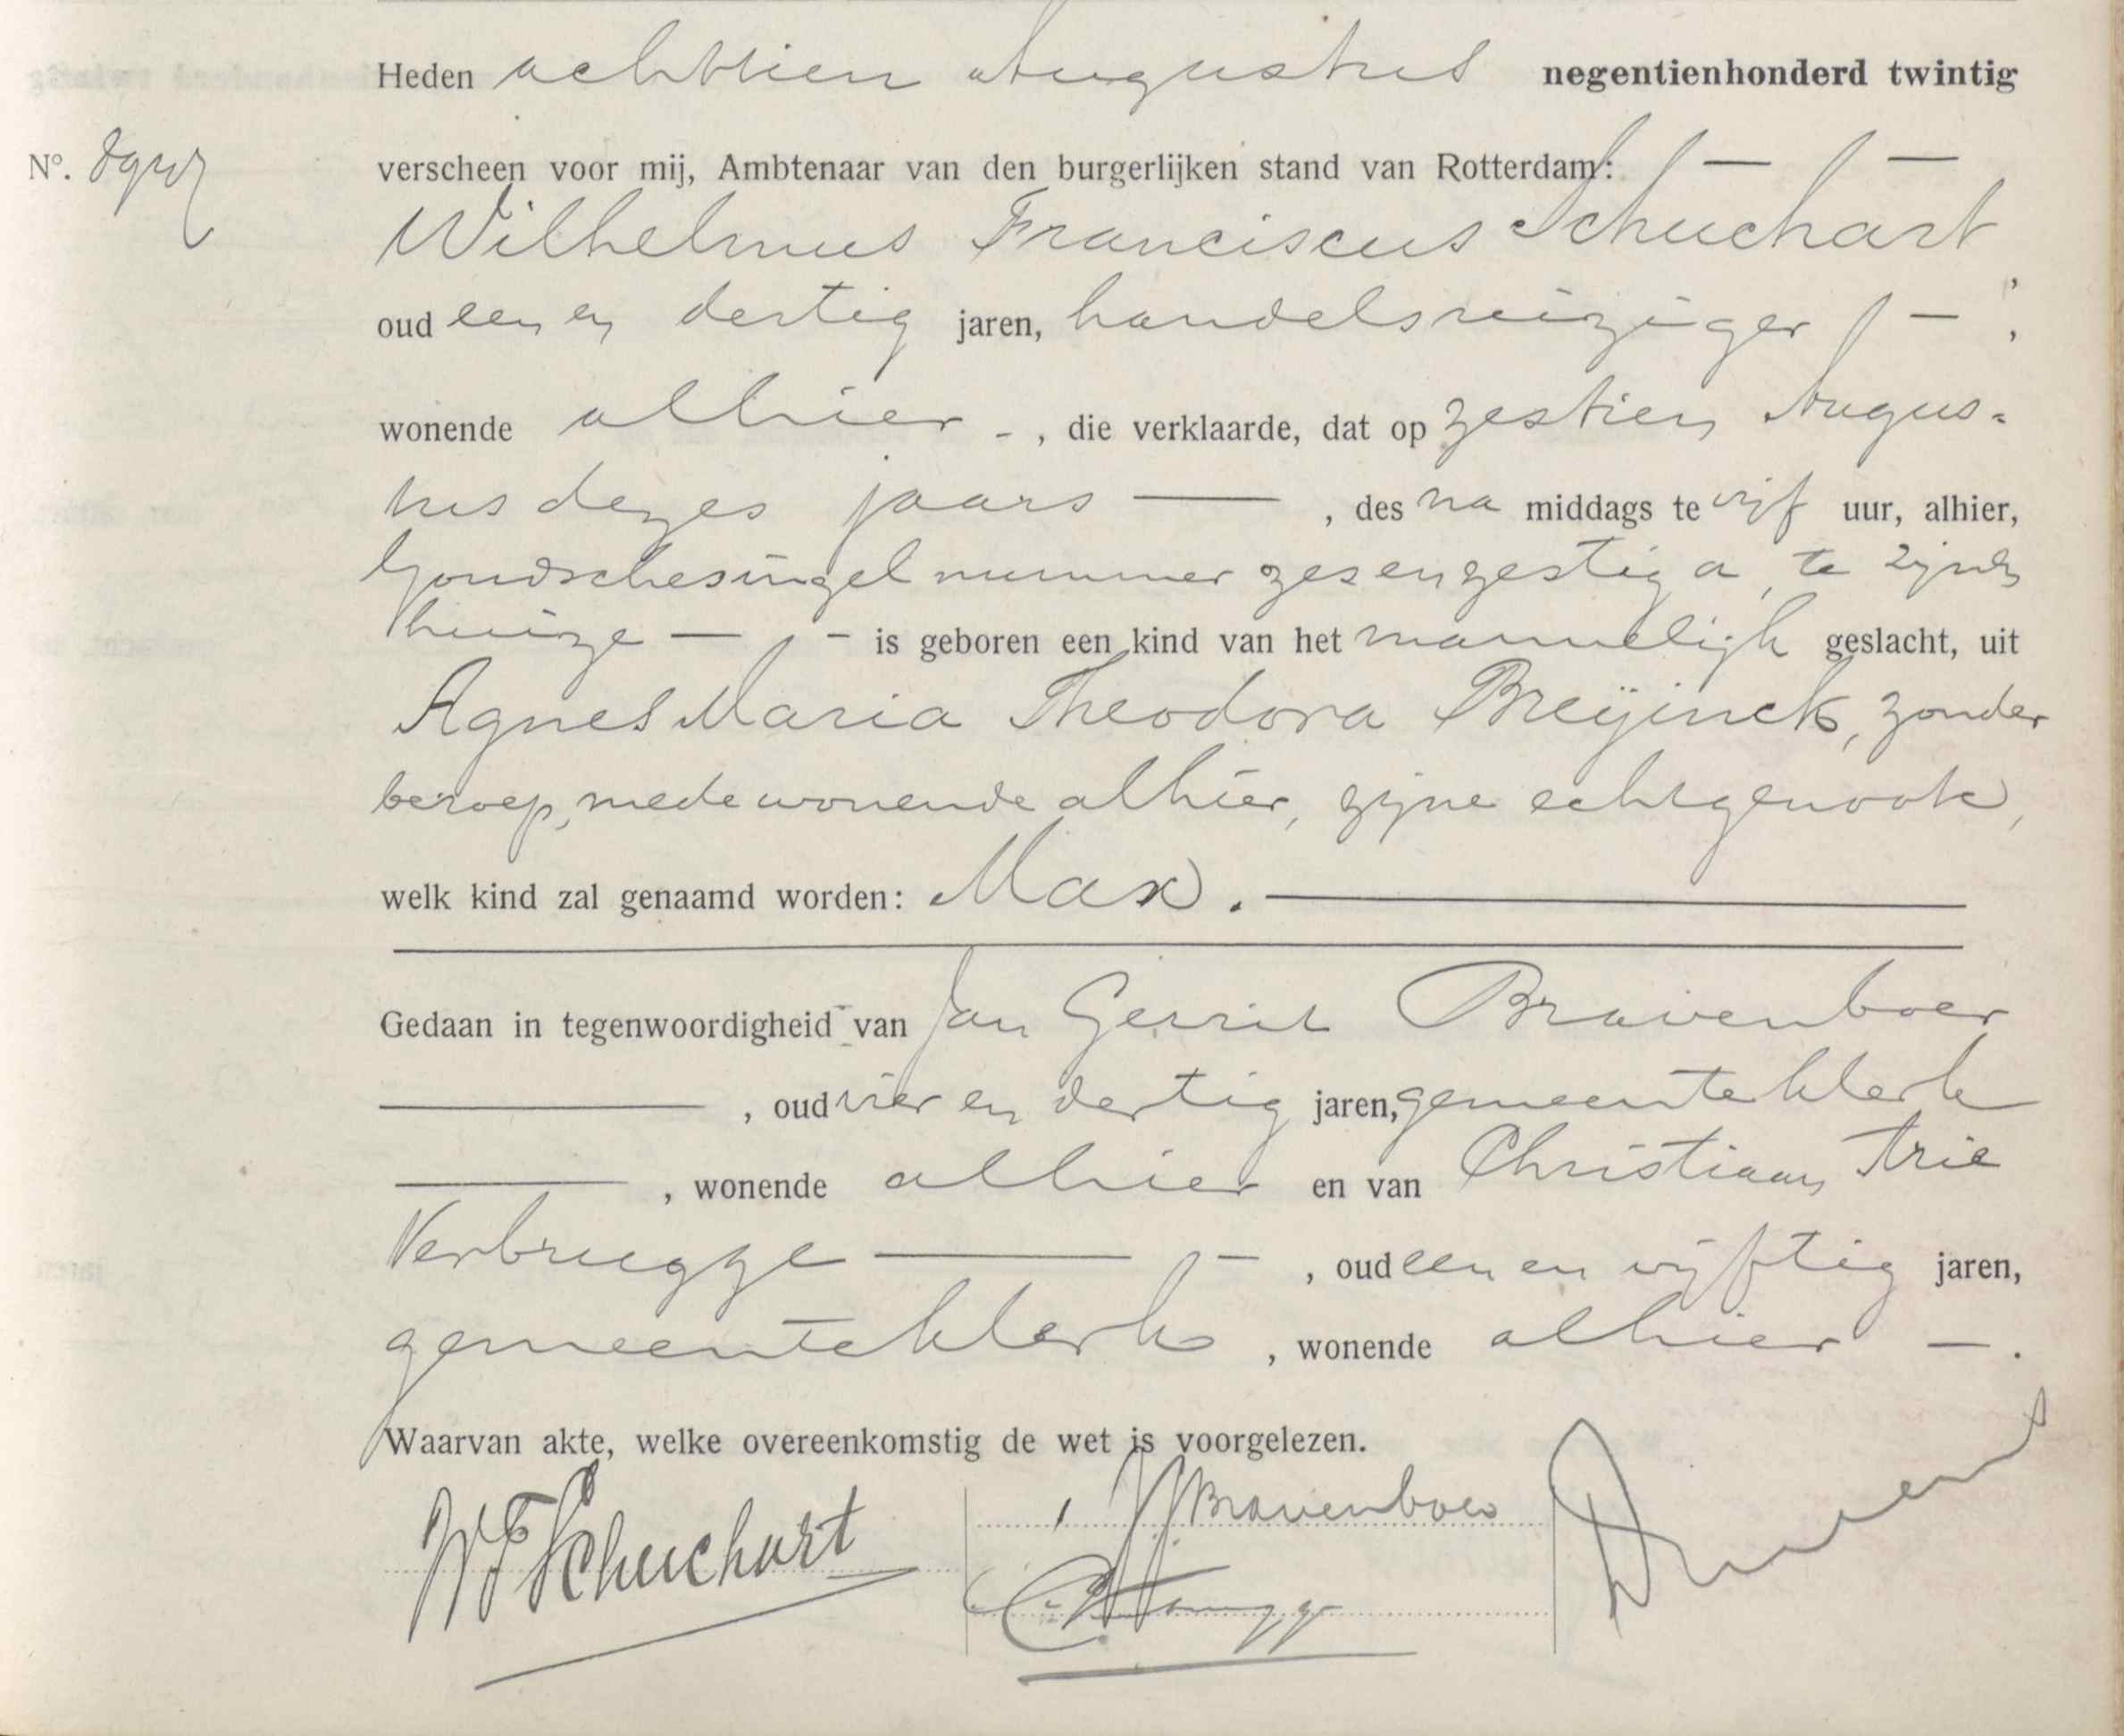 Heden achttien Augustus negentienhonderd twintig
Nº.
verscheen voor mij, Ambtenaar van den burgerlijken stand van Rotterdam:
Wilhelmus Franciscus Schuchart
oud een en dertig jaren, handelsreiziger
wonende alhier, die verklaarde, dat op zestien Augus=
tus dezes jaars, des na middags te vijf uur, alhier,
Goudschesingel nummer zesenzestig a, te zijnen
huize — is geboren een kind van het mannelijk geslacht, uit
Agnes Maria Theodora Breÿinck, zonder
beroep, mede wonende alhier, zijne echtgenoote,
welk kind zal genaamd worden: Max.
Gedaan in tegenwoordigheid van Jan Gerrit Bravenboer
, oud vier en dertig jaren, gemeenteklerk
, wonende alhier en van Christiaan Arie
Verbrugge, oud een en vijftig jaren,
gemeenteklerk, wonende alhier.
Waarvan akte, welke overeenkomstig de wet is voorgelezen.
WFSchuchart
JGBravenboer